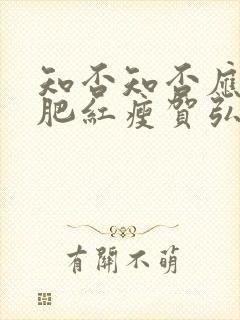 知否知否應
肥紅瘦賀弘
有開不萌